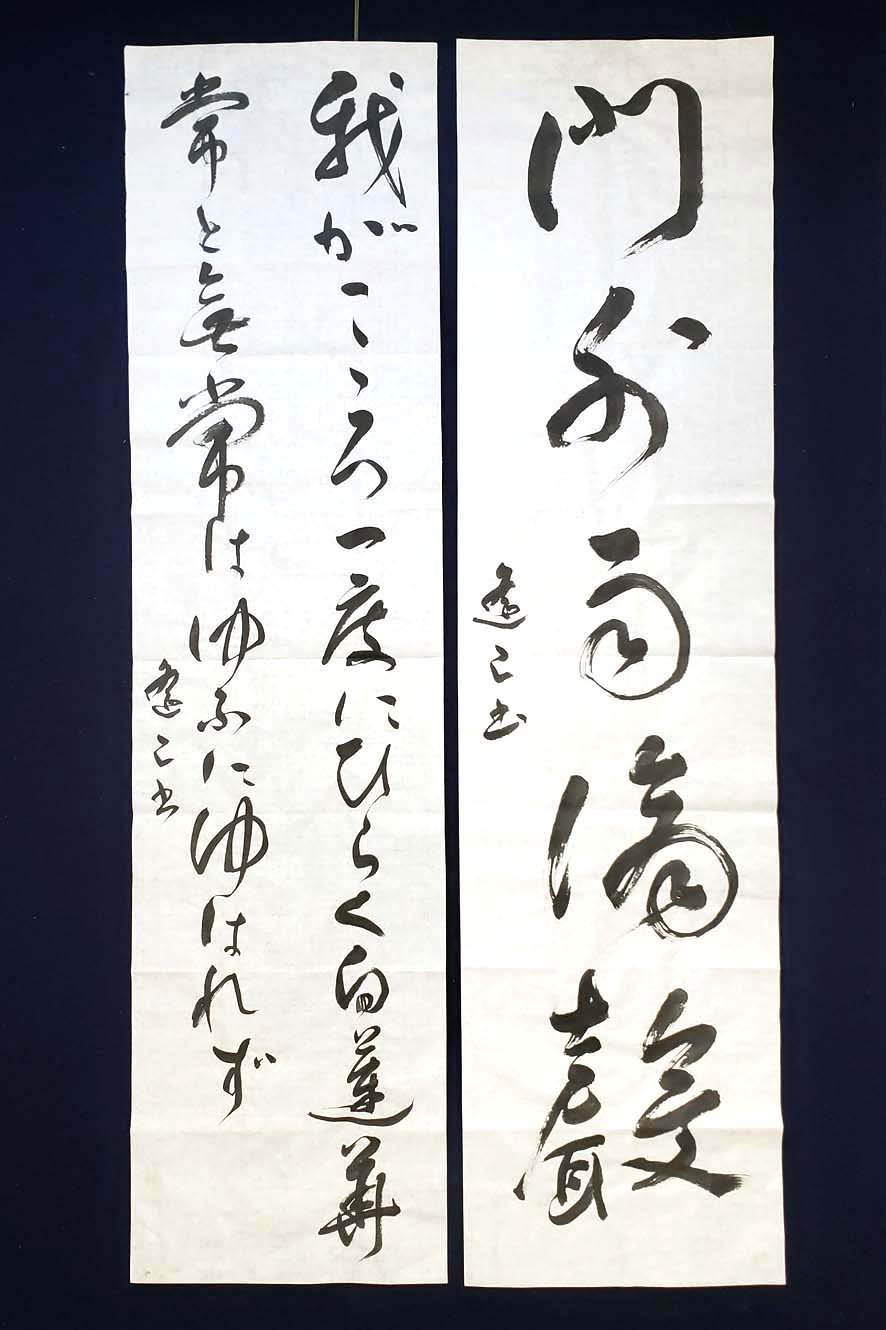 門外雨滴聲
遼己書
我がこころ一度にひらく白蓮華
常と無常はゆふにゆはれず
遼己書